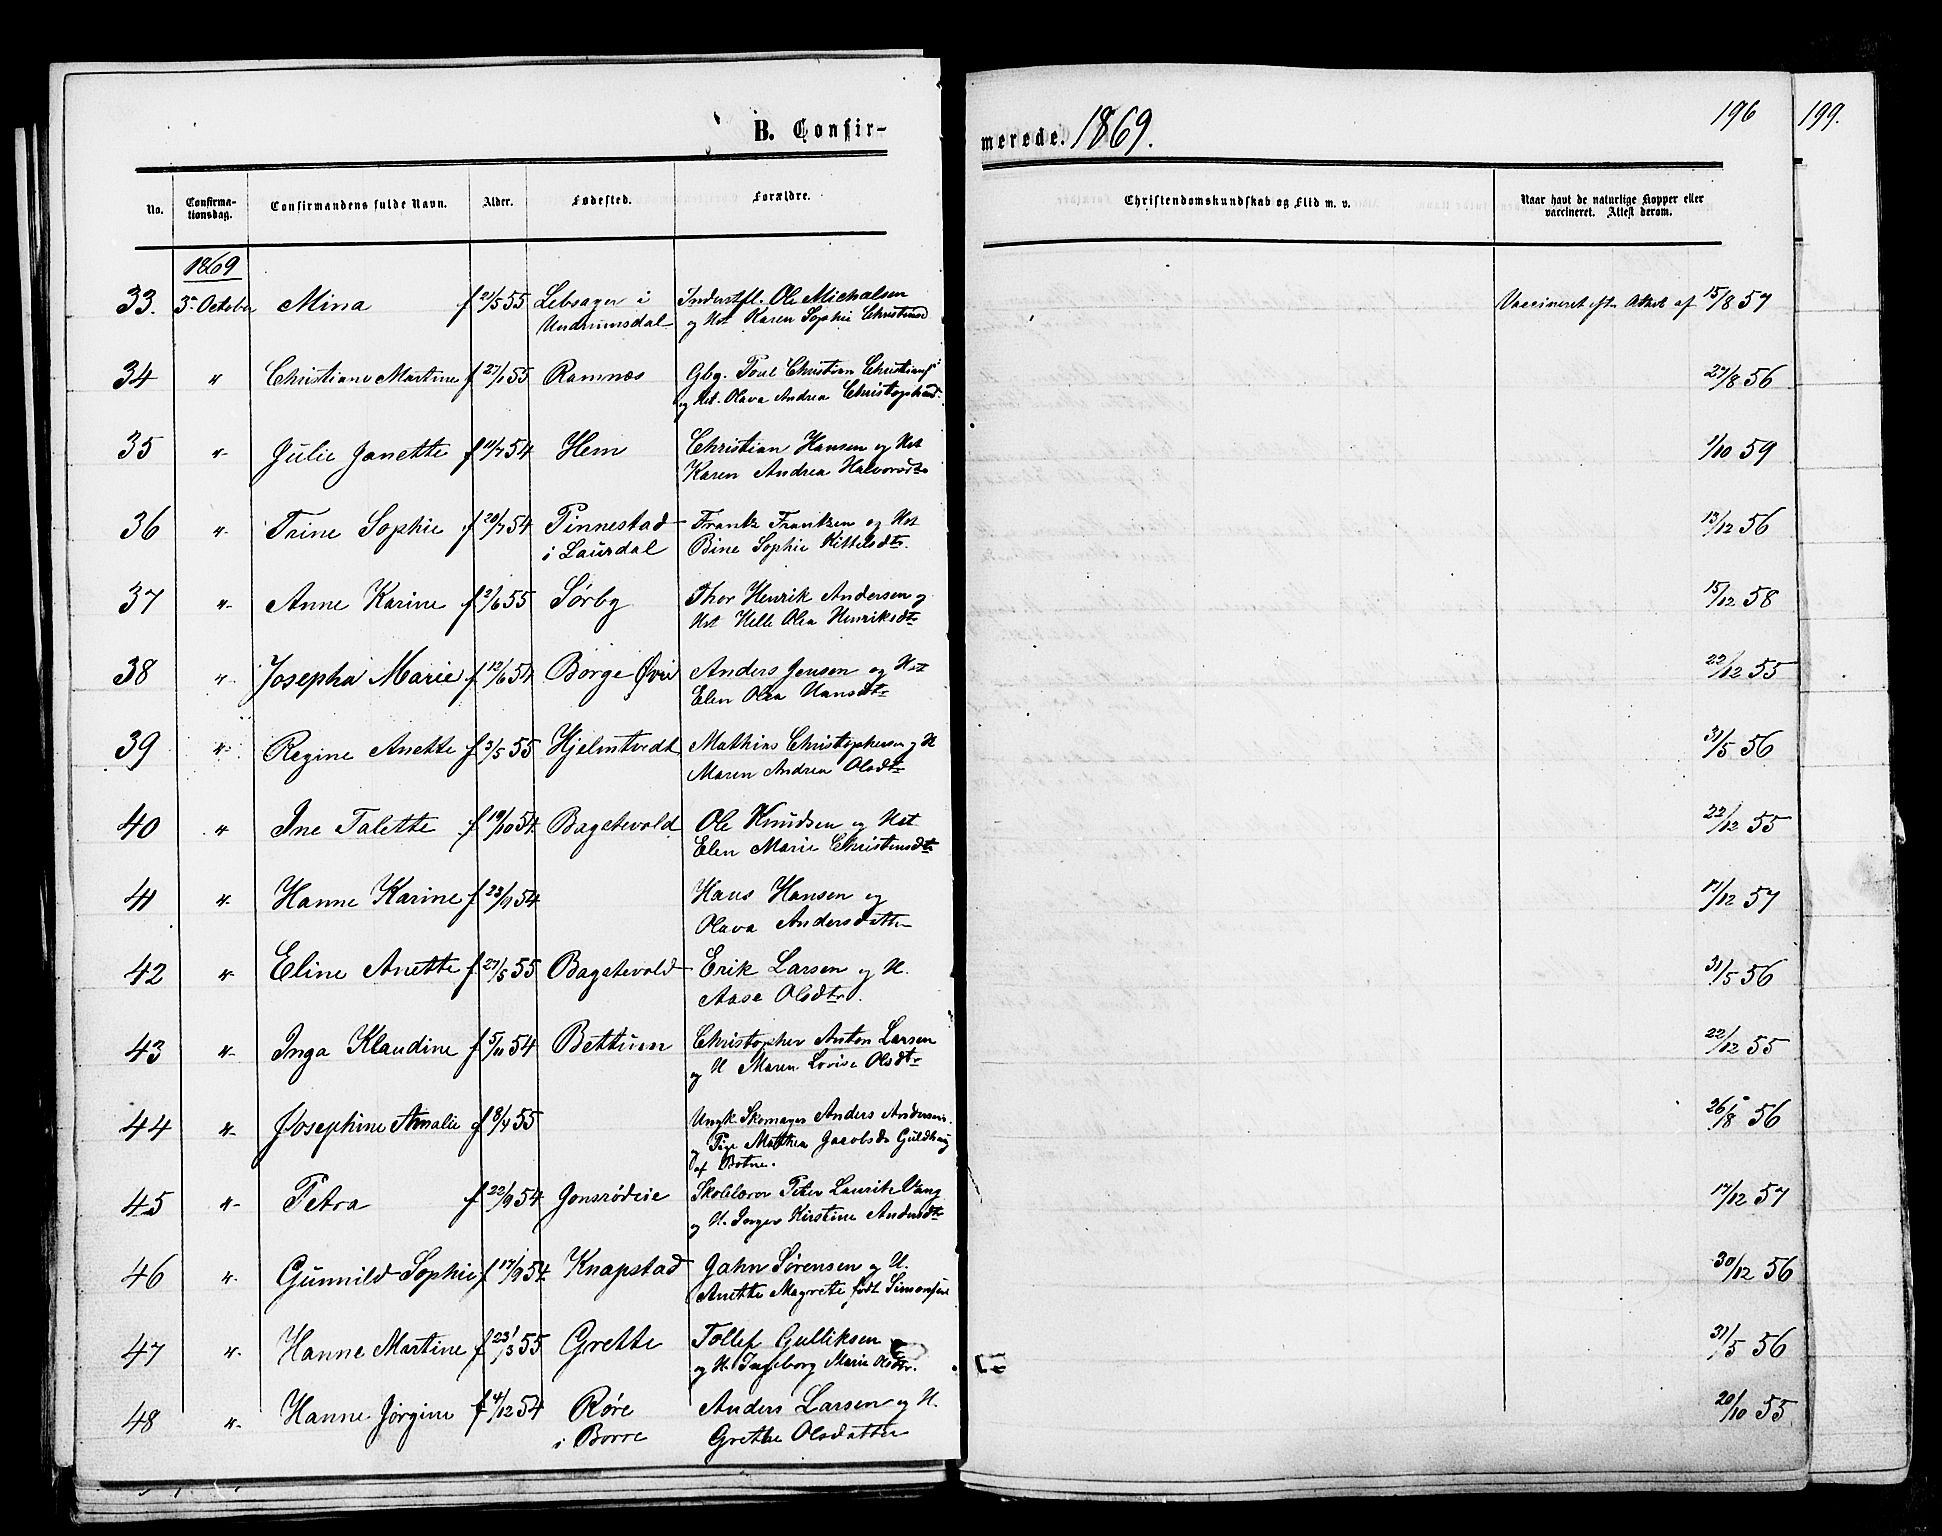 B. Confir-
merede. 1869.
196
199.
No.
Confirma-
tionsdag.
Confirmandens fulde Navn.
Alder.
Fødested.
Forældre.
Christendomskundskab og Flid m. v.
Naar havt de naturlige Kopper eller
vaccineret. Attest derom.
1869
33. 3. October Mina f 21/5 55 Lebsager i Inderstfl. Ole Michalsen Vaccineret eft. Attest af 15/8 57
Undrumsdal og Hst Karen Sophie
34 " Christiane Martine f 27/1 55 Ramnæs Gbg. Poul Christian 27/8 56
og Hst. Olava Andrea
35 " Julie Janette f 19/7 54 Hem Christian Hansen og Hst 1/10 59
Karen Andrea Halvorsdtr
36 " Trine Sophie f 20/7 54 Pinnestad Frantz Frantzen og Hst 13/12 56
i Laurdal Bine Sophie Kittelsdtr.
37 " Anne Karine f 2/6 55 Sørby Thor Henrik Andersen og 15/12 58
Hst Helle Olea Henriksdtr
38 " Josepha Marie f 12/6 54 Borge Øvre Anders Jensen og Hst 22/12 55
Elen Olea Hansdtr
39 " Regine Anette f 3/5 55 Hjelmtvedt Mathias Christophersen og H 31/5 56
Maren Andrea Olsdtr
40 " Ine Talette f 19/10 54 Bagstevold Ole Knudsen og Hst 22/12 55
Elen Marie Christensdtr
41 " Hanne Karine f 23/9 54 Hans Hansen og 17/12 57
Olava Andersdatter
42 " Eline Anette f 27/5 55 Bagstevold Erik Larsen og H. 31/5 56
Aase Olsdtr.
43 " Inga Klaudine f 5/11 54 Bettum Christopher Anton Larsen 22/12 55
og H Maren Lovise Olsdtr
44 " Josephine Amalie f 8/4 55 Ungk. Skomager Anders Andersen 26/8 56
og Pige Mathea Jacobsd. Guldhaug
af Botne.
45 " Petra f 22/9 54 Jonsrødeie Skolelærer Peter Lauritz Vang 17/12 57
og H. Inger Kirstine Andersdtr
46 " Gunnild Sophie f 17/9 54 Knapstad Jahn Sørensen og H. 30/12 56
Anette Magrete født Simonsen
47 " Hanne Martine f 23/3 55 Grette Tollef Gulliksen 31/5 56
og H. Ingeborg Marie Olsdtr.
48 " Hanne Jørgine f 4/12 54 Røre Anders Larsen og H. 20/10 55
i Borre Grethe Olsdatter